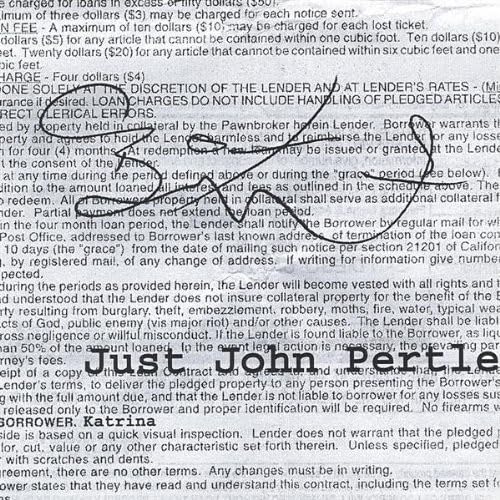 be charged for loans in excess of fifty dollars ($50).
imum of three dollars ($3) may be charged for each notice sent.
N FEE - A maximum of ten dollars ($10) may be charged for each lost ticket.
dollars ($5) for any article that cannot be contained within one cubic foot. Ten dollars ($10)
eet. Twenty dollars ($20) for any article that cannot be contained within six cubic feet and one
bic
HARGE - Four dollars ($4)
DONE SOLELY AT THE DISCRETION OF THE LENDER AND AT LENDER'S RATES - (Mi
urance if desired. LOAN CHARGES DO NOT INCLUDE HANDLING OF PLEDGED ARTICLE
RRECT CLERICAL ERRORS.
ed by property held in collateral by the Pawnbroker herein Lender. Borrower warrants th
perty and agrees to hold the Lender harmless and to reimburse the Lender for any losses
n for four (4) months. At redemption a new loan may be issued or granted at the Lender
t the consent of the
at any time during the period defined above or during the "grace" period (see below). I
dition to the amount loaned, interest and fees as outlined in the schedule above. The
o redeem. All of Borrower's property held as collateral shall serve as additional collateral f
nder. Partial payment does not extend the loan period.
n the four month loan period, the Lender shall notify the Borrower by regular mail for wi
Post Office, addressed to Borrower's last known address, of termination of the loan con
10 days (the "grace") from the date of mailing such notice per section 21201 of Californ
g, by registered mail, of any change of address. If writing for information give number
pected.
during the periods as provided herein, the Lender will become vested with all rights and t
nd understood that the Lender does not insure collateral property for the benefit of the B
rty resulting from burglary, theft, embezzlement, robbery, moths, fire, water, typical wea
cts of God, public enemy (vis major riot) and/or other causes. The Lender shall be liabl
ross negligence or willful misconduct. If the Lender is found liable to the Borrower, as liqu
an 50% of the amount loaned. In the event legal action is necessary, the prevailing par
rney's fees.
Just John Pertle
ceipt of a copy of the Loan Contract and agrees and understands that
Lender's terms, to deliver the pledged property to any person presenting the Borrower's
g with the full amount due, and that the Lender is not liable to borrower for any losses sus
released only to the Borrower and proper identification will be required. No firearms w
BORROWER. Katrina
side is based on a quick visual inspection. Lender does not warrant that the pledged p
lor, cut, value or any other characteristic set forth therein. Unless specified, pledged
r with scratches and dents.
greement, there are no other terms. Any changes must be in writing.
ower states that they have read and understand this contract, including the terms set f